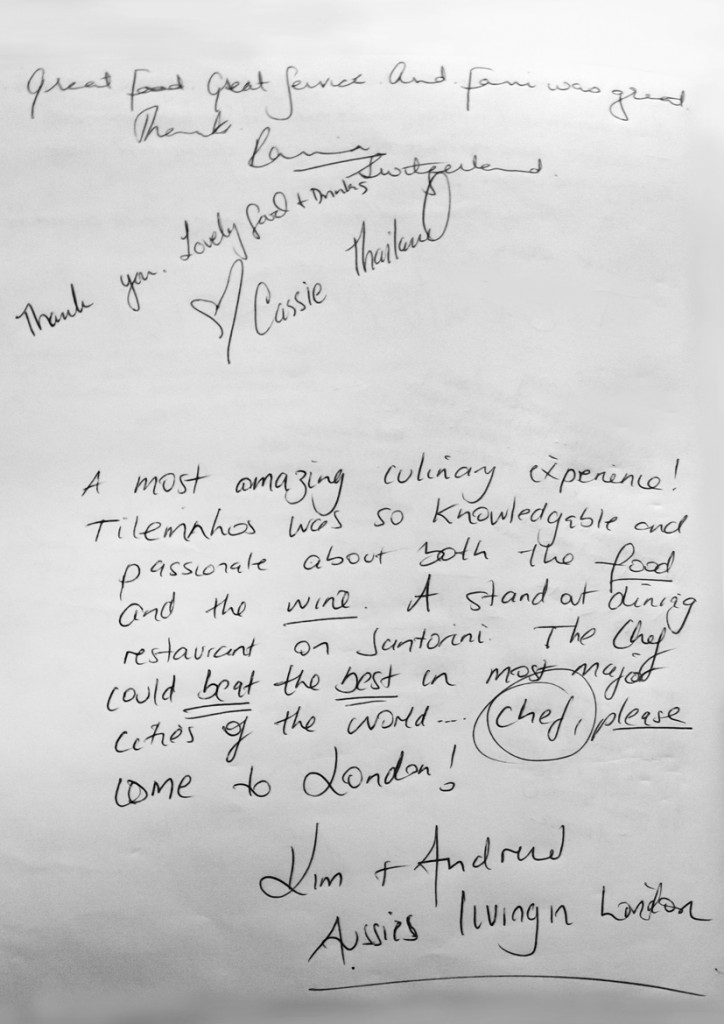 Great food Great Service And fam was great
Thank
Switzerland
Thank you. Lovely food + Drinks
Cassie Thailand
A most amazing culinary experience!
Tilemahos was so knowledgable and
passionate about both the food
and the wine. A stand out dining
restaurant on Santorini. The Chef
could beat the best in most major
cities of the world.... Chef, please
come to London!
Kim + Andrew
Aussies living in London